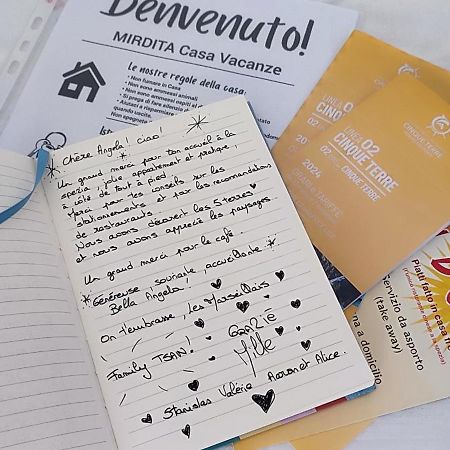 Benvenuto!
MIRDITA Casa Vacanze
Le nostre regole della casa:
• Non fumare in Casa
• Non sono ammessi animali
• Non sono ammessi ospiti al
• Si prega di fare silenzio
• Aiutaci a risparmiare
quando uscite.
Non spegnete
Chère Angela! ciao!
Un grand merci pour ton accueil à la
spezia, jolie appartement et pratique,
à côté de tout à pied.
Merci pour les conseils sur les
stationnements et pour les recommandations
de restaurants.
Nous avons découvert les 5 terres
et nous avons apprécié les paysages.
Un grand merci pour le café.
Généreuse, souriante, accueillante
Bella Angela!
On t'embrasse, Les Marseillais
Family TSAN!
Stanislas Valérie Aaron et Alice.
LINEA
CINQUETERRE
02
20
LINEA 02
CINQUE TERRE
2024
ORARI e TARIFFE
CINQUE TERRE
Piatti fatto in casa
Servizio da asporto
(take away)
a domicilio